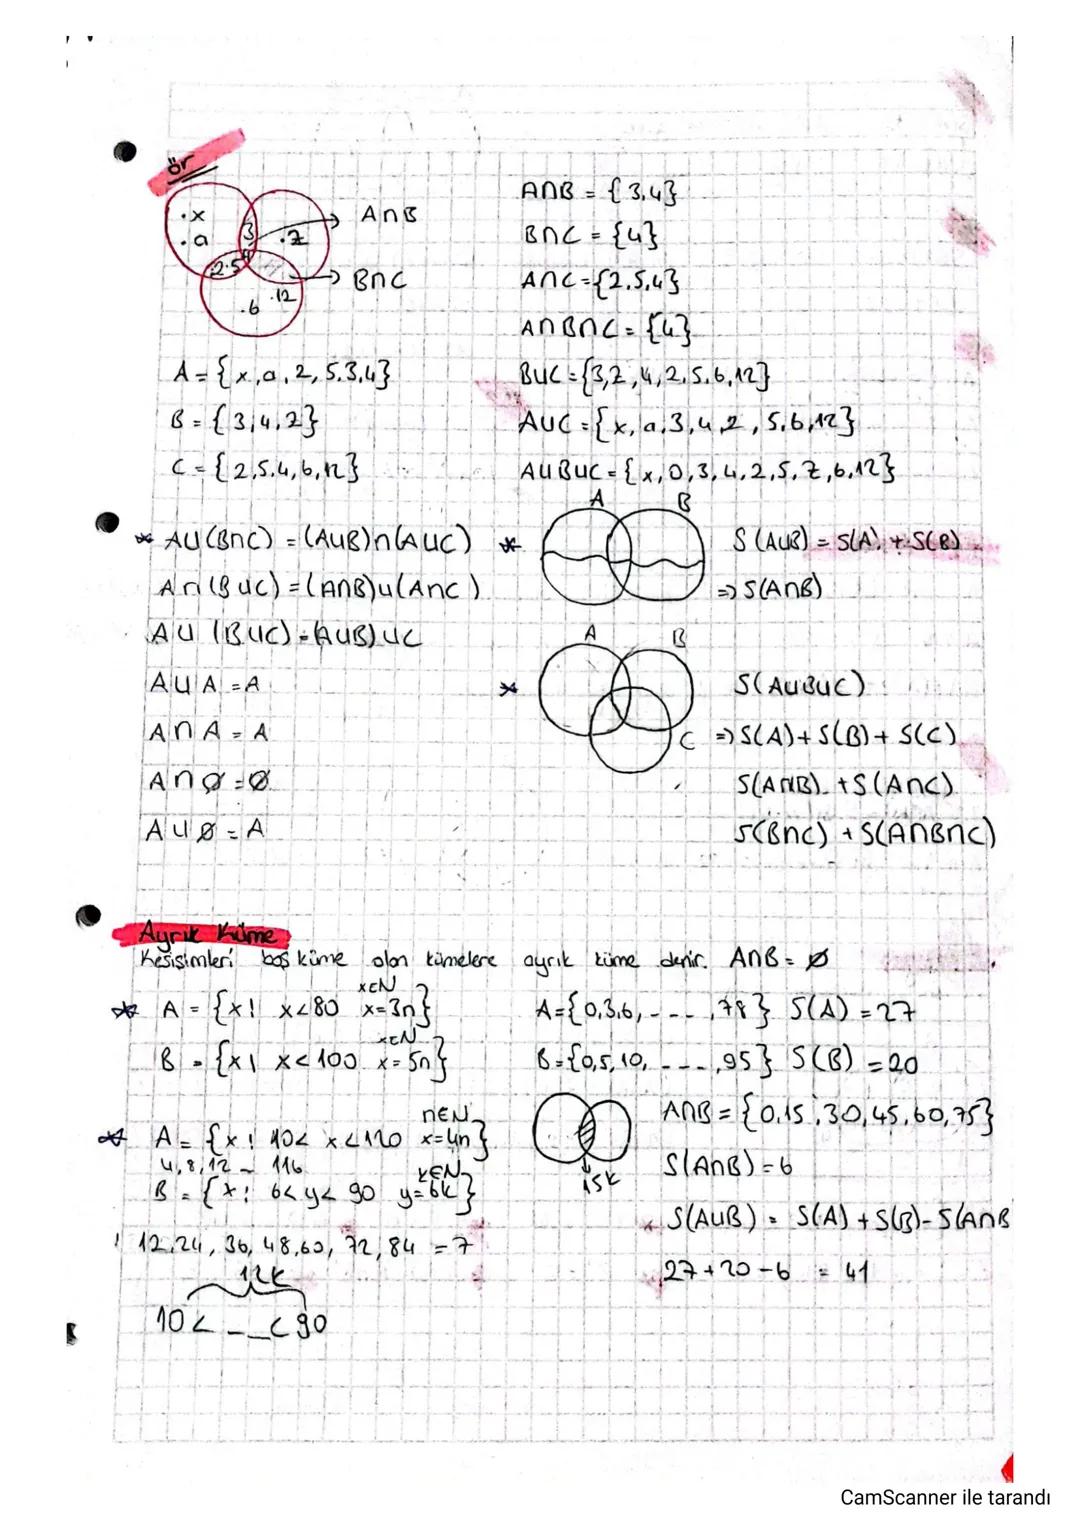 ör
.x
.a
3
.z
4
.2.5
.6
.12
A∩B
B∩C
A = {x, a, 2, 5, 3, 4}
B = {3, 4, z}
C = {2, 5, 4, 6, 12}
A∩B = {3, 4}
B∩C = {4}
A∩C = {2, 5, 4}
A∩B∩C = {4}
BUC = {3, z, 4, 2, 5, 6, 12}
AUC = {x, a, 3, 4, 2, 5, 6, 12}
AUBUC = {x, a, 3, 4, 2, 5, z, 6, 12}
* AU(B∩C) = (AUB)∩(AUC)
A∩(BUC) = (A∩B)U(A∩C)
AU(BUC) = (AUB)UC
AUA = A
A∩A = A
A∩Ø = Ø
AUØ = A
* A B
S(AUB) = S(A) + S(B)
=> S(A∩B)
* A B
C
S(AUBUC)
=> S(A) + S(B) + S(C)
S(A∩B) + S(A∩C)
S(B∩C) + S(A∩B∩C)
Ayrık Küme
Kesişimleri boş küme olan kümelere ayrık küme denir. A∩B = Ø
* A = {x | x<80 x=3n} x∈N
B = {x | x<100 x=5n} x∈N
A = {0,3,6, - - - ,78} S(A) = 27
B = {0,5,10, - - - ,95} S(B) = 20
15k
A∩B = {0,15,30,45,60,75}
S(A∩B) = 6
* S(AUB) = S(A) + S(B) - S(A∩B
27+20-6 = 41
* A = {x | 10< x <120 x=4n} n∈N
4,8,12 - 116
B = {x | 6<y<90 y=6k} k∈N
12,24,36,48,60,72,84 = 7
12k
10< _ _ <90
CamScanner ile tarandı